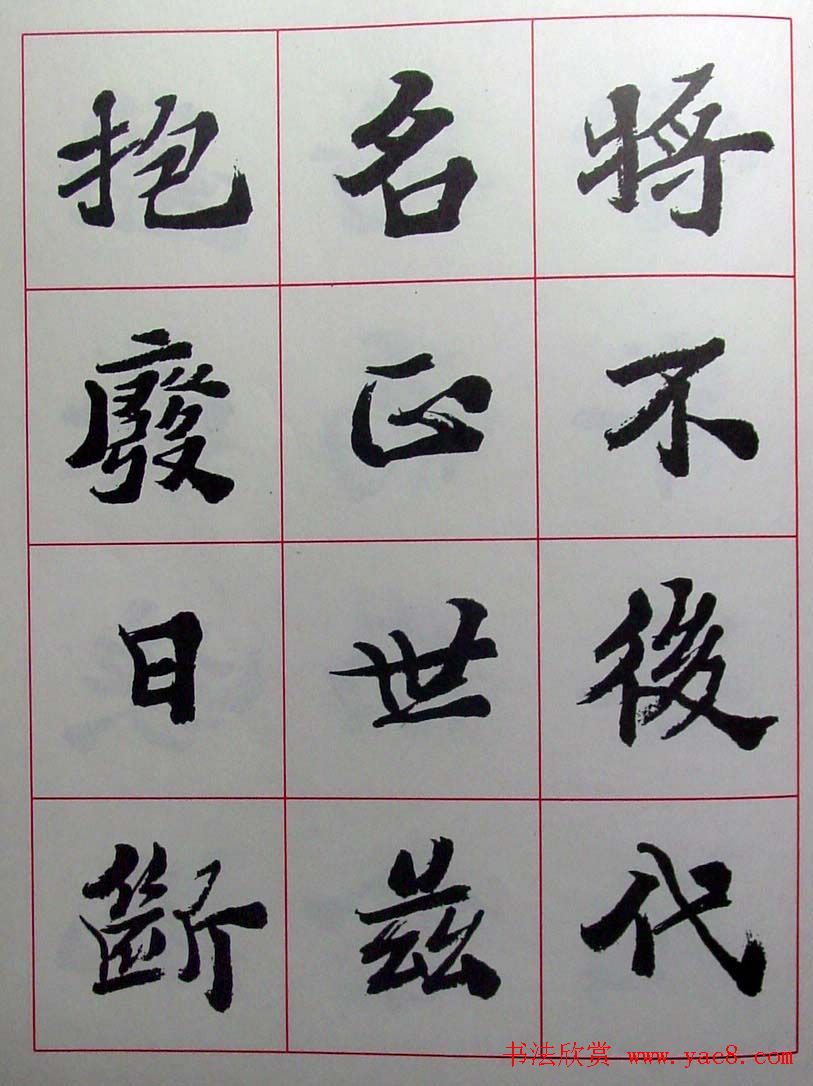 将不後代
名正世兹
抱廢日斷
书法欣赏 www.yac8.com